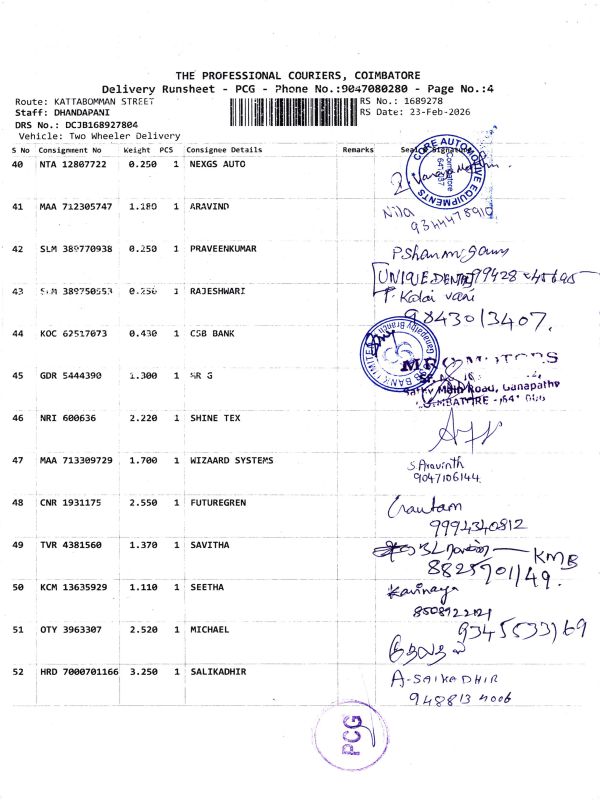 THE PROFESSIONAL COURIERS, COIMBATORE
Delivery Runsheet - PCG - Phone No.:9047080280 - Page No.:4
Route: KATTABOMMAN STREET RS No.: 1689278
Staff: DHANDAPANI RS Date: 23-Feb-2026
DRS No.: DCJB168927804
Vehicle: Two Wheeler Delivery
S No Consignment No Weight PCS Consignee Details Remarks
40 NTA 12807722 0.250 1 NEXGS AUTO
CORE AUTOMOTIVE EQUIPMENTS
Coimbatore
41 MAA 712305747 1.180 1 ARAVIND
Nila
9344478910
42 SLM 389770938 0.250 1 PRAVEENKUMAR
UNIQUE DENTAL
43 SLM 389750553 0.250 1 RAJESHWARI
T. Kalai vani
9843013407.
44 KOC 62517073 0.430 1 CSB BANK
Ganapathy Branch
45 GDR 5444390 1.300 1
Sathy Main Road, Ganapathy
46 NRI 600636 2.220 1 SHINE TEX
47 MAA 713309729 1.700 1 WIZAARD SYSTEMS
S.Aravinth
9047106144
48 CNR 1931175 2.550 1 FUTUREGREN
Gautam
9994340812
49 TVR 4381560 1.370 1 SAVITHA
KMB
50 KCM 13635929 1.110 1 SEETHA
Kavinaya
51 OTY 3963307 2.520 1 MICHAEL
52 HRD 7000701166 3.250 1 SALIKADHIR
A-SAIKADHIR
PCG